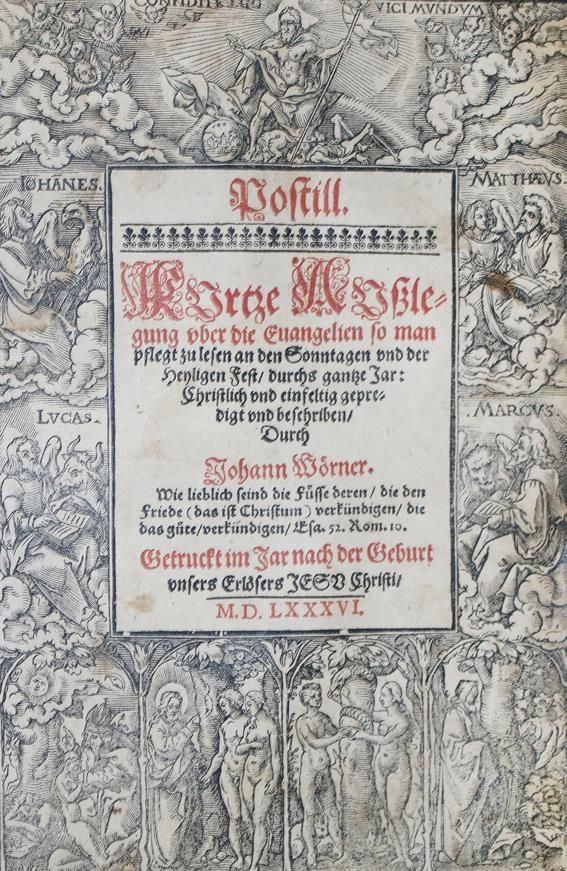 CONFIDITE EGO VICI MVNDVM
IOHĀNES.
MATTHÆVS.
LVCAS.
MARCVS.
Postill.
KUrtze AUßle-
gung vber die Euangelien so man
pflegt zu lesen an den Sonntagen vnd der
Heyligen Fest/ durchs gantze Jar:
Christlich vnd einfeltig gepre-
digt vnd beschriben/
Durch
Johann Wörner.
Wie lieblich seind die Füsse deren/ die den
Friede (das ist Christum) verkündigen/ die
das güte/verkündigen/ Esa. 52. Rom. 10.
Getruckt im Jar nach der Geburt
vnsers Erlösers JESV Christi/
M.D. LXXXVI.